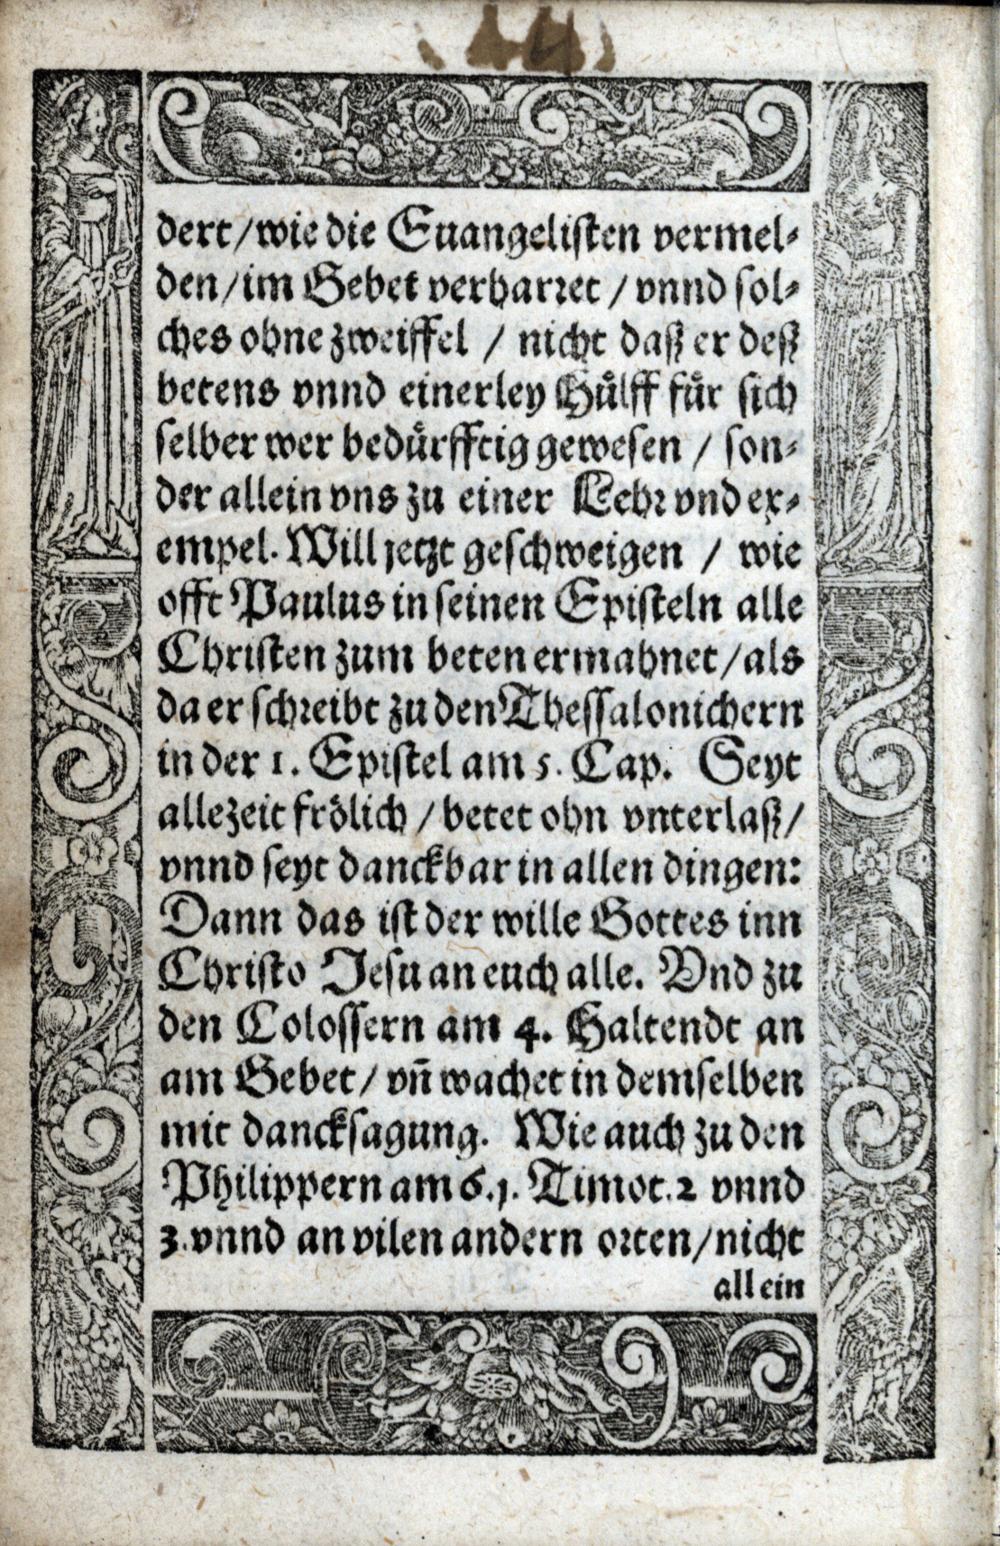 dert/wie die Euangelisten vermel-
den/im Gebet verharret / vnnd sol-
ches ohne zweiffel / nicht daß er deß
betens vnnd einerley Huͤlff fuͤr sich
selber wer beduͤrfftig gewesen / son-
der allein vns zu einer Lehr vnd ex-
empel. Will jetzt geschweigen / wie
offt Paulus in seinen Episteln alle
Christen zum beten ermahnet/als
da er schreibt zu den Thessalonichern
in der 1. Epistel am 5. Cap. Seyt
allezeit froͤlich / betet ohn vnterlaß/
vnnd seyt danckbar in allen dingen:
Dann das ist der wille Gottes inn
Christo Jesu an euch alle. Vnd zu
den Colossern am 4. Haltendt an
am Gebet/ vn̄ wachet in demselben
mit dancksagung. Wie auch zu den
Philippern am 6.1. Timot.2 vnnd
3.vnnd an vilen andern orten/nicht
allein